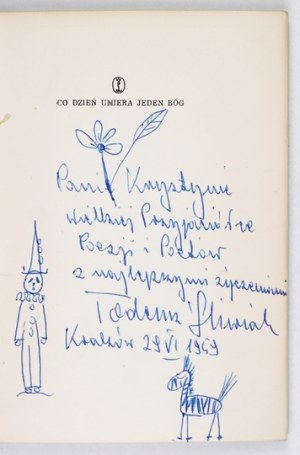 CO DZIEŃ UMIERA JEDEN BÓG
Pani Krystynie
wielkiej Przyjaciółce
Poezji i Poetów
z najlepszymi życzeniami
Tadeusz Śliwiak
Kraków 29 VI 1969